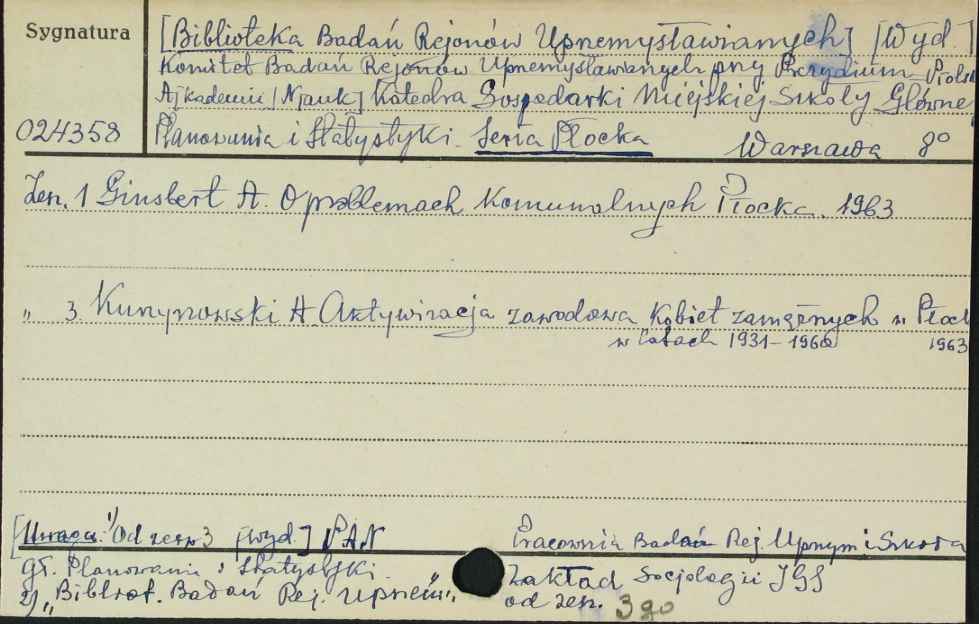 Sygnatura
[Biblioteka Badań Rejonów Uprzemysławianych] [Wyd.]
Komitet Badań Rejonów Uprzemysławianych przy Prezydium Polsk
A[kademii] N[auk] Katedra Gospodarki Miejskiej Szkoły Główne
024358 Planowania i Statystyki. Seria Płocka Warszawa 8°
Zesz. 1 Ginsbert A. O problemach komunalnych Płocka. 1963
„ 3. Kurzynowski A. Aktywizacja zawodowa kobiet zamężnych w Płoc
w latach 1931-1960 1963
[Uwaga: 1) Od zesz 3 [wyd.] PAN Pracownia Badań Rej. Uprzym i Szkoła
Gł. Planowania i Statystyki. Zakład Socjologii IGS
2) „Bibliot. Badań Rej. Uprzem" od zesz. 3 go